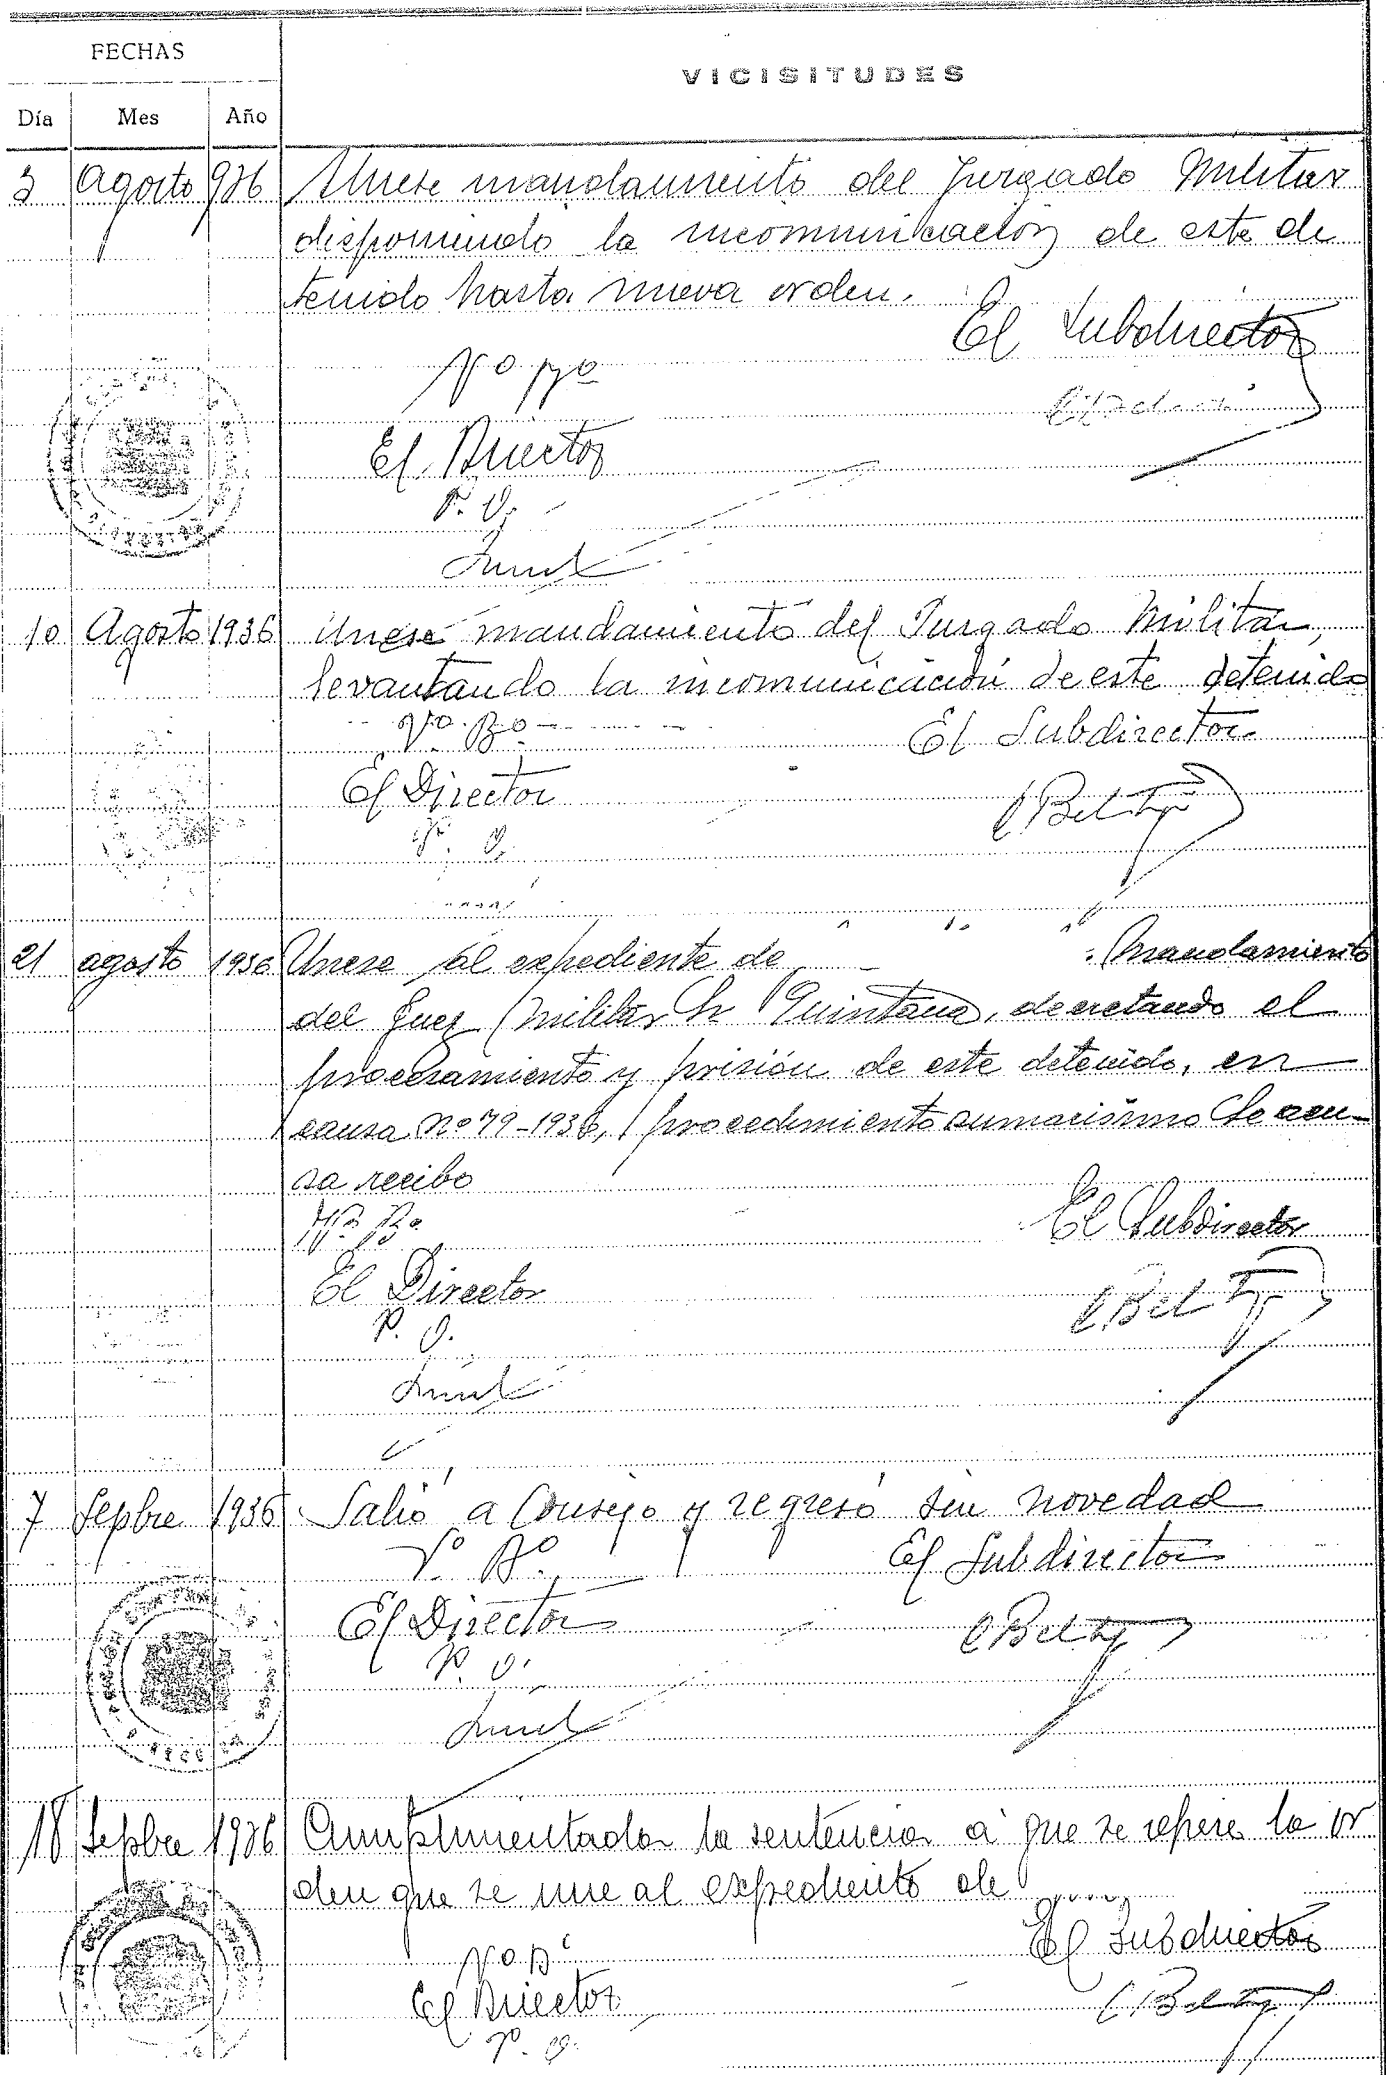 FECHAS
VICISITUDES
Día Mes Año
3 Agosto 936 Unese mandamiento del Juzgado Militar
disponiendo la incomunicación de este de
tenido hasta nueva orden.
El Subdirector
Vo Bo
El Director
P. O.
10 Agosto 1936 Unese mandamiento del Juzgado Militar,
levantando la incomunicación de este detenido
Vo. Bo
El Subdirector
El Director
P. O.
21 agosto 1936 Unese al expediente de mandamiento
del Juez militar Sr Quintana, decretando el
procesamiento y prisión de este detenido, en
causa no 79-1936, procedimiento sumarisimo Se acu-
sa recibo
Vo. Bo
El Subdirector
El Director
P. O.
7 Sepbre 1936 Salió a Consejo y regresó sin novedad
Vo Bo
El Subdirector
El Director
P. O.
18 Sepbre 1936 Cumplimentada la sentencia a que se refiere la or
den que se une al expediente de
El Subdirector
Vo B
El Director
P. O.